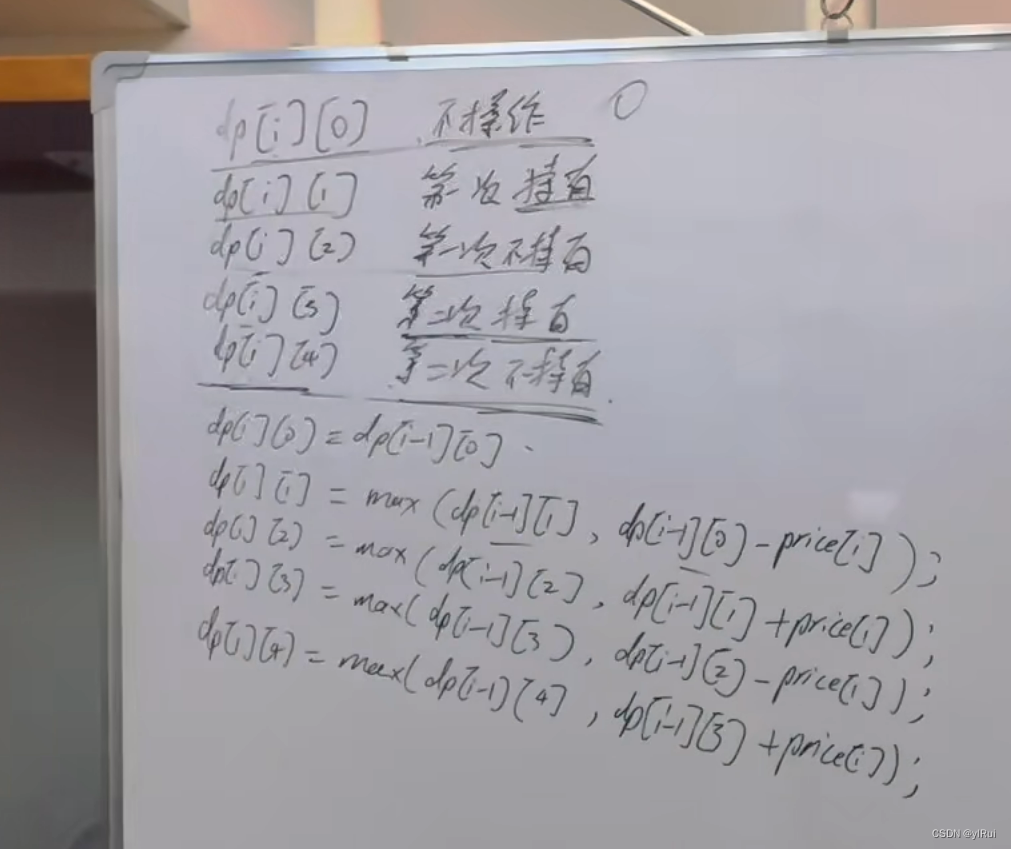 dp[i][0] 不操作 0
dp[i][1] 第一次持有
dp[i][2] 第一次不持有
dp[i][3] 第二次持有
dp[i][4] 第二次不持有.
dp[i][0] = dp[i-1][0]
dp[i][1] = max(dp[i-1][1], dp[i-1][0]-price[i]);
dp[i][2] = max(dp[i-1][2], dp[i-1][1]+price[i]);
dp[i][3] = max(dp[i-1][3], dp[i-1][2]-price[i]);
dp[i][4] = max(dp[i-1][4], dp[i-1][3]+price[i]);
CSDN @yIRui